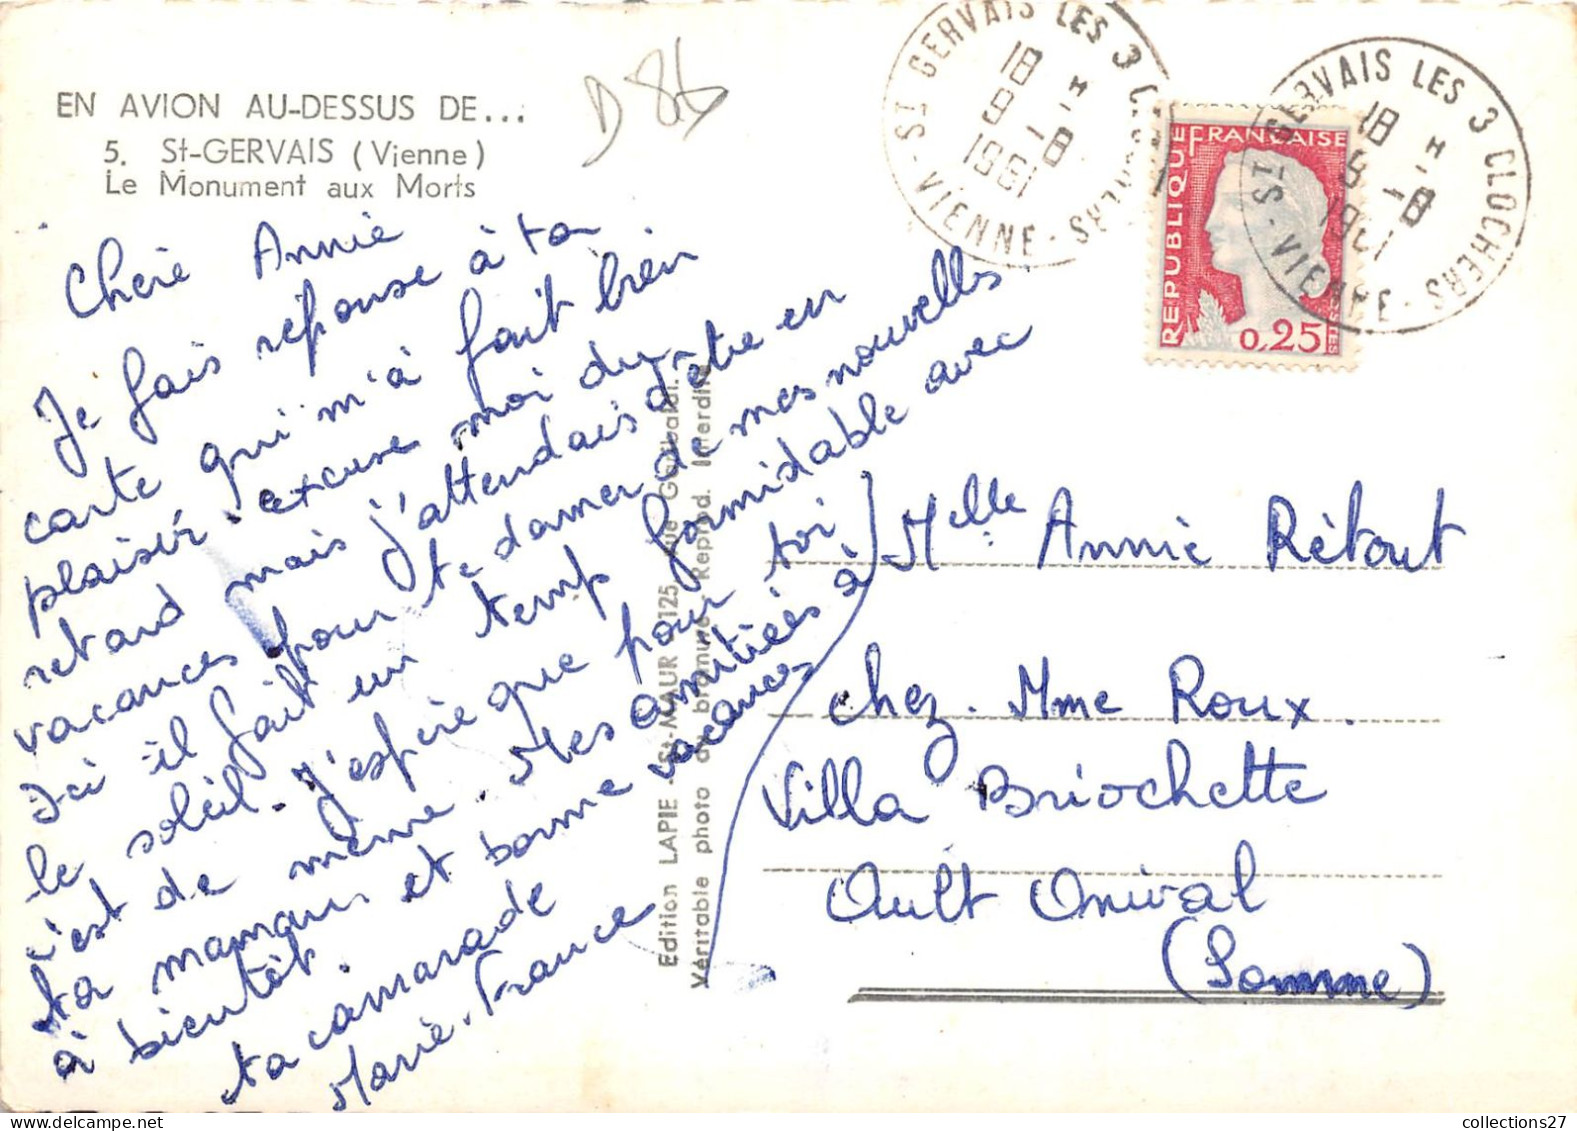 EN AVION AU-DESSUS DE...
5. St-GERVAIS (Vienne)
Le Monument aux Morts
D 86
ST GERVAIS LES 3 CLOCHERS - VIENNE -
18 H
9 - 8
1961
ST GERVAIS LES 3 CLOCHERS - VIENNE -
18 H
9 - 8
1961
REPUBLIQUE FRANÇAISE
0,25
Chère Annie
Je fais réponse à ta
carte qui m'à fait bien
plaisir. excuse moi du
retard mais j'attendais d'être en
vacances pour te donner de mes nouvelles
Ici il fait un temp formidable avec
le soleil. J'espère que pour toi
c'est de même. Mes amitiées à
ta maman et bonne vacances
à bientôt.
ta camarade
Marie-France
Edition LAPIE - St-MAUR - 125, rue Garibaldi.
Véritable photo au bromure - Reprod. Interdite
Melle Annie Rétout
chez. Mme Roux.
Villa Briochette
Ault Onival
(Somme)
collections27